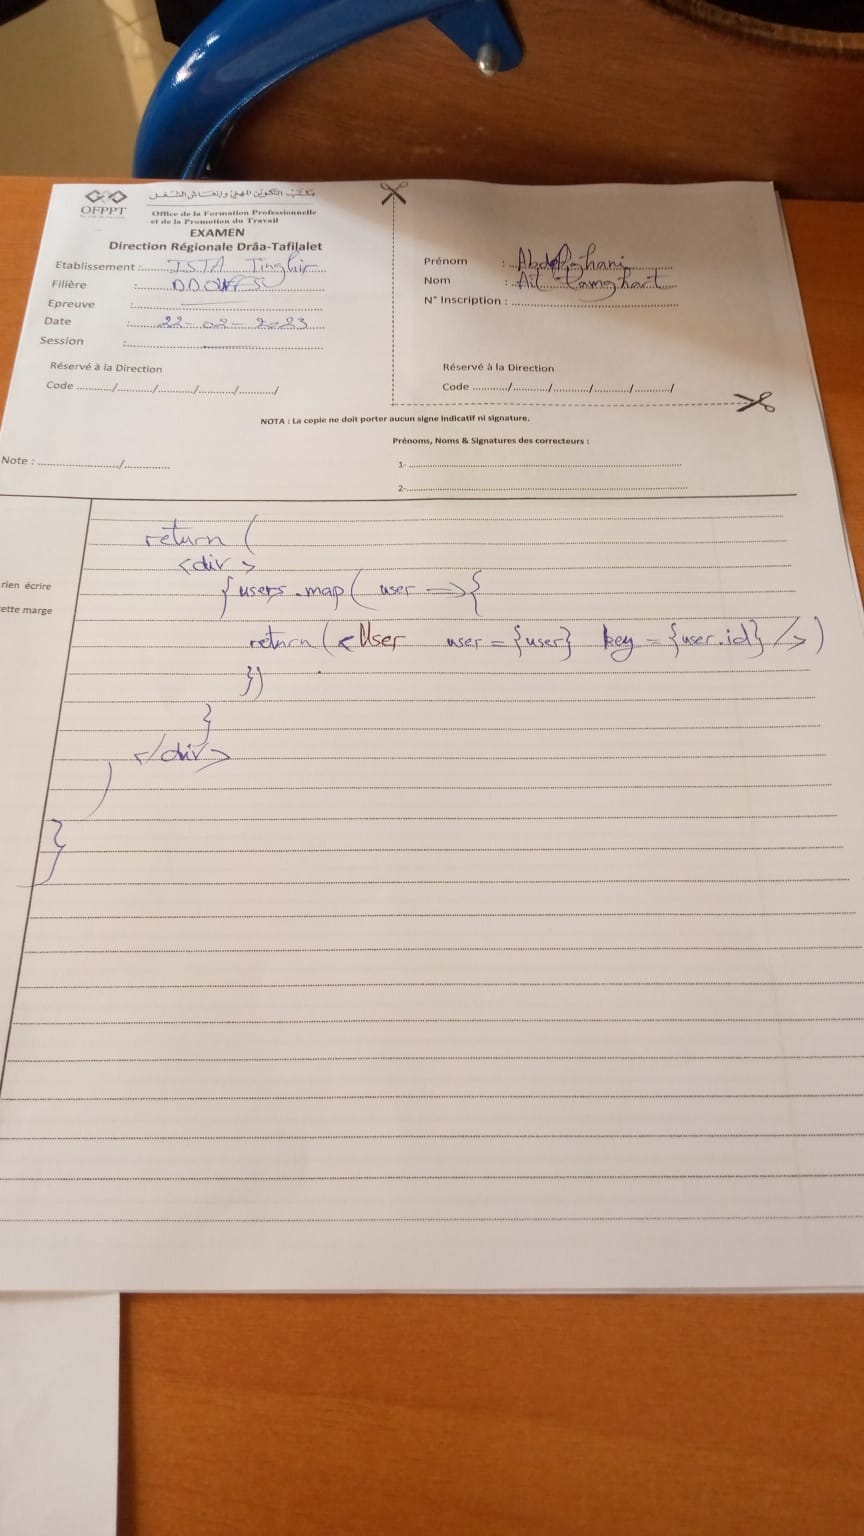 مكتب التكوين المهني وإنعاش الشغل
OFPPT
Office de la Formation Professionnelle
et de la Promotion du Travail
EXAMEN
Direction Régionale Drâa-Tafilalet
Etablissement : ISTA Tinghir
Filière :
Epreuve :
Date : 22-02-2023
Session :
Réservé à la Direction
Code ........../........../........../........../........../
Prénom : Abdelghani
Nom : Ait Lamghart
N° Inscription :
Réservé à la Direction
Code ........../........../........../........../........../
NOTA : La copie ne doit porter aucun signe indicatif ni signature.
Note : ........................./..............
Prénoms, Noms & Signatures des correcteurs :
1-
2-
rien écrire
ette marge
return (
<div>
{users.map( user => {
return(<User user={user} key={user.id} />)
})
}
</div>
)
}